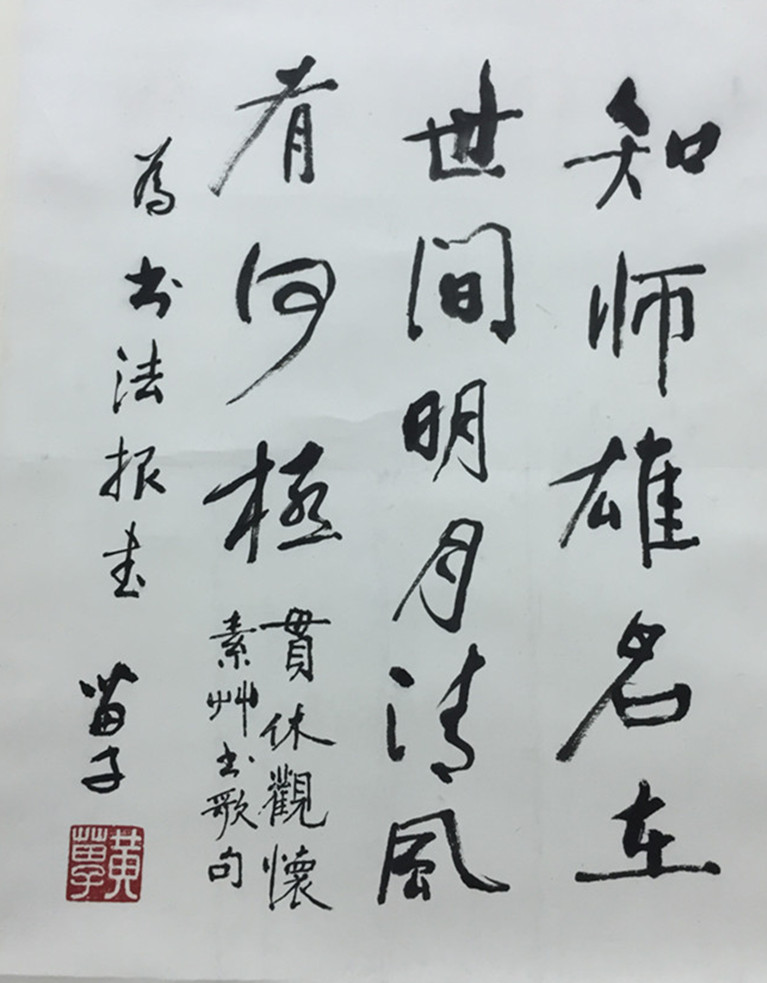 知师雄名在
世间明月清風
有何極
貫休觀懷
素艸书歌句
為书法报书
苗子
黄苗子